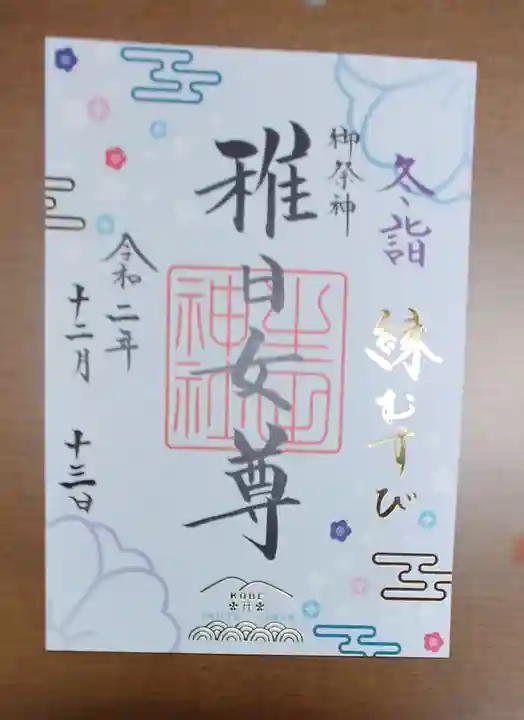 冬詣
縁むすび
御祭神
稚日女尊
生田
神社
令和二年
十二月
十三日
KOBE